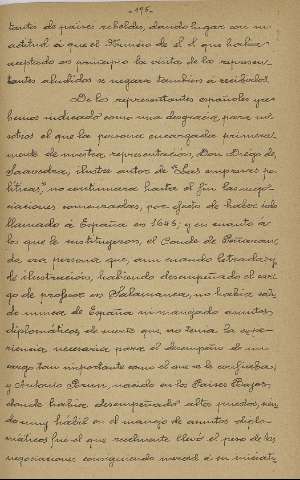 -195-
tantes de países rebeldes, dando lugar con su
actitud á que el Nuncio de S. S. que había
aceptado en principio la visita de los represen-
tantes aludidos se negara también á recibirlos.
De los representantes españoles ya
hemos indicado como una desgracia para no-
sotros el que la persona encargada primera-
mente de nuestra representación, Don Diego de
Saavedra, ilustre autor de "Las empresas po-
líticas," no continuara hasta el fin las nego-
ciaciones comenzadas, por efecto de haber sido
llamado á España en 1646; y en cuanto á
los que le sustituyeron, el Conde de Peñaran-
da era persona que, aun siendo letrado y
de ilustración, habiendo desempeñado el car-
go de profesor en Salamanca, no había sali-
do nunca de España ni manejado asuntos
diplomáticos, de suerte que no tenía la expe-
riencia necesaria para el desempeño de un
cargo tan importante como el que se le confiaba;
y Antonio Brun, nacido en los Países Bajos,
donde había desempeñado altos puestos, sien-
do muy hábil en el manejo de asuntos diplo-
máticos fué el que realmente llevó el peso de las
negociaciones consiguiendo merced á su iniciati-